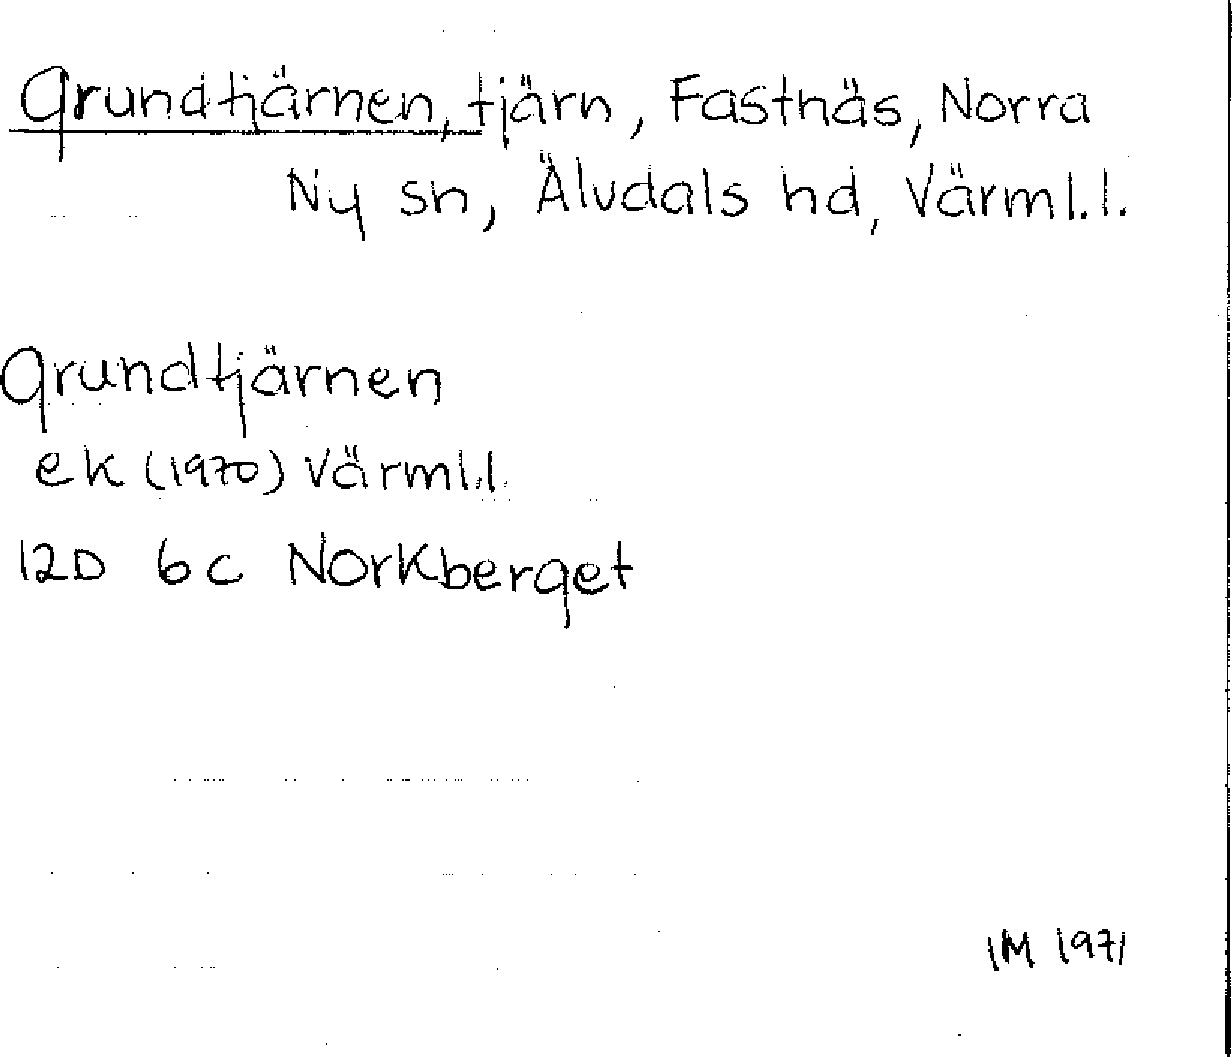 Grundtjärnen, tjärn, Fastnäs, Norra
Ny sn, Älvdals hd, Värml. l.
Grundtjärnen
ek (1970) Värml. l.
12D 6c Norkberget
IM 1971